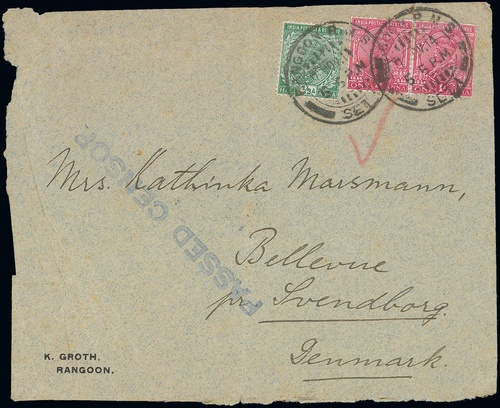 INDIA POSTAGE
INDIA POSTAGE
RANGOON R.M.S.
SET
Mrs. Kathinka Marsmann,
PASSED CENSOR
Bellevue
pr Svendborg.
Denmark.
K. GROTH,
RANGOON.